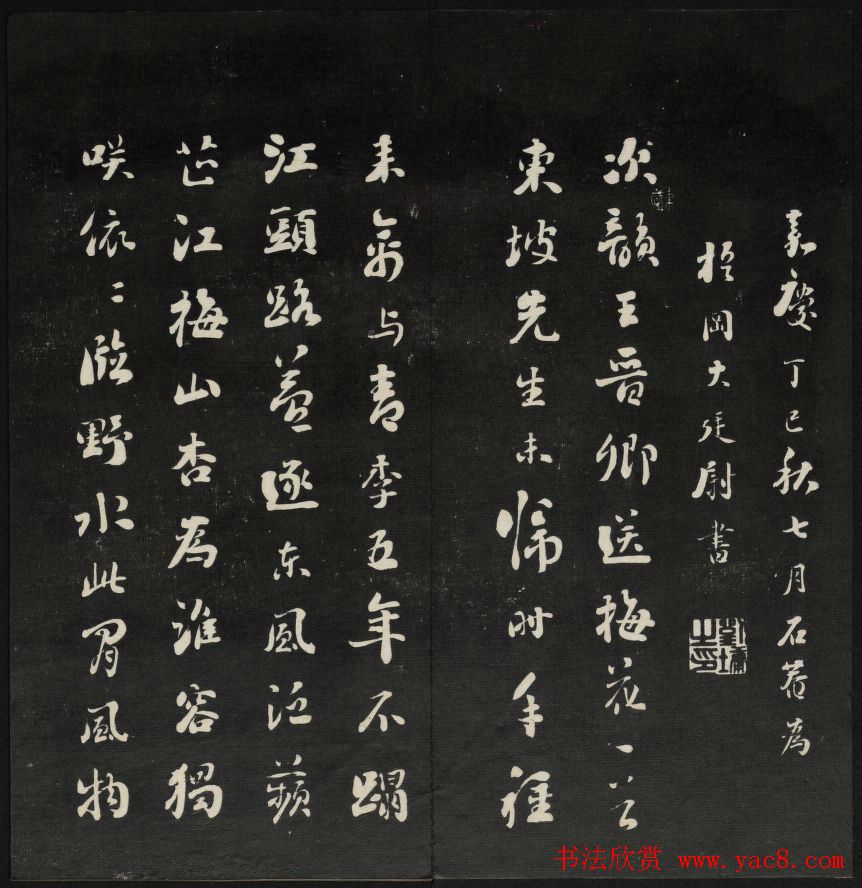 嘉慶丁巳秋七月石菴為
植岡大廷尉書
劉墉之印
次韻王晋卿送梅花一首
東坡先生未歸時手種
来禽与青李五年不蹋
江頭路夢逐東風泛蘋
芷江梅山杏為誰容獨
咲依〻臨野水此間風物
书法欣赏 www.yac8.com